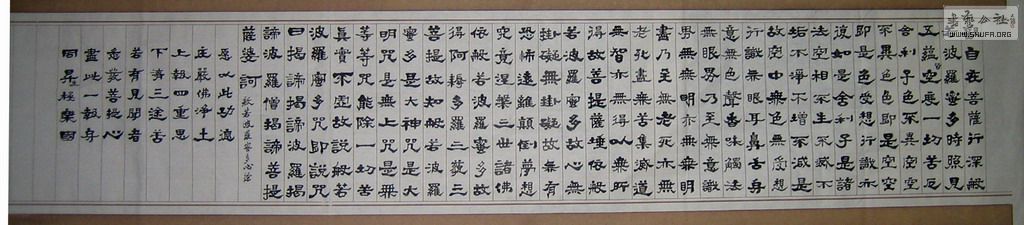 自在菩薩行深般
波羅蜜多時照見
五蘊皆空度一切苦厄
舍利子色不異空空
不異色色即是空空
即是色受想行識亦
復如是舍利子是諸
法空相不生不滅不
垢不淨不增不減是
故空中無色無受想
行識無眼耳鼻舌身
意無色聲香味觸法
無眼界乃至無意識
界無無明亦無無明
盡乃至無老死亦無
老死盡無苦集滅道
無智亦無得以無所
得故菩提薩埵依般
若波羅蜜多故心無
罣礙無罣礙故無有
恐怖遠離顛倒夢想
究竟涅槃三世諸佛
依般若波羅蜜多故
得阿耨多羅三藐三
菩提故知般若波羅
蜜多是大神咒是大
明咒是無上咒是無
等等咒能除一切苦
真實不虛故說般若
波羅蜜多咒即說咒
曰揭諦揭諦波羅揭
諦波羅僧揭諦菩提
薩婆訶 般若波羅蜜多心經
願以此功德
莊嚴佛淨土
上報四重恩
下濟三途苦
若有見聞者
悉發菩提心
盡此一報身
同生極樂國
WWW.SHUFA.ORG